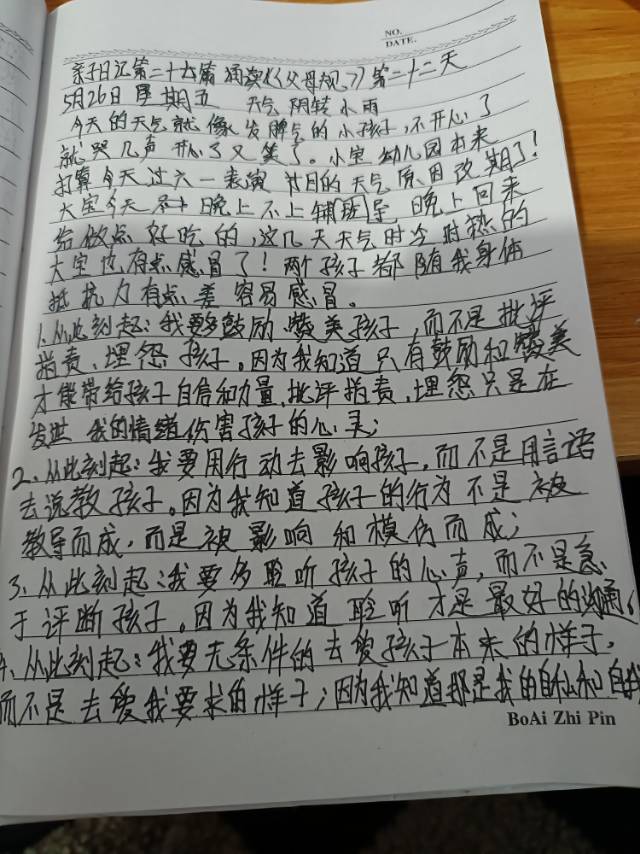 NO.
DATE.
亲子日记第二十六篇 诵读《父母规》第二十二天
5月26日 星期五 天气 阴转小雨
今天的天气就像发脾气的小孩子,不开心了
就哭几声 开心了又笑了。小宝幼儿园本来
打算今天过六一表演 的天气原因改期了!
大宝今天 晚上不上辅 晚上回来
给做点好吃的,这几天天气时冷时热的
大宝也有点感冒了!两个孩子都随我身体
抵抗力有点差 容易感冒。
1.从此刻起:我要多鼓励 赞美孩子,而不是批评
指责、埋怨 孩子。因为我知道只有鼓励和赞美
才能带给孩子自信和力量,批评指责、埋怨只是在
发泄 我的情绪伤害孩子的心灵;
2.从此刻起:我要用行动去影响孩子,而不是用言语
去说教孩子。因为我知道孩子的行为不是被
教导而成,而是被影响和模仿而成;
3.从此刻起:我要多聆听孩子的心声,而不是急
于评断孩子。因为我知道聆听才是最好的沟通。
4.从此刻起:我要无条件的去爱孩子本来的样子,
而不是去爱我要求的样子;因为我知道那是我的自私和自我
BoAi Zhi Pin